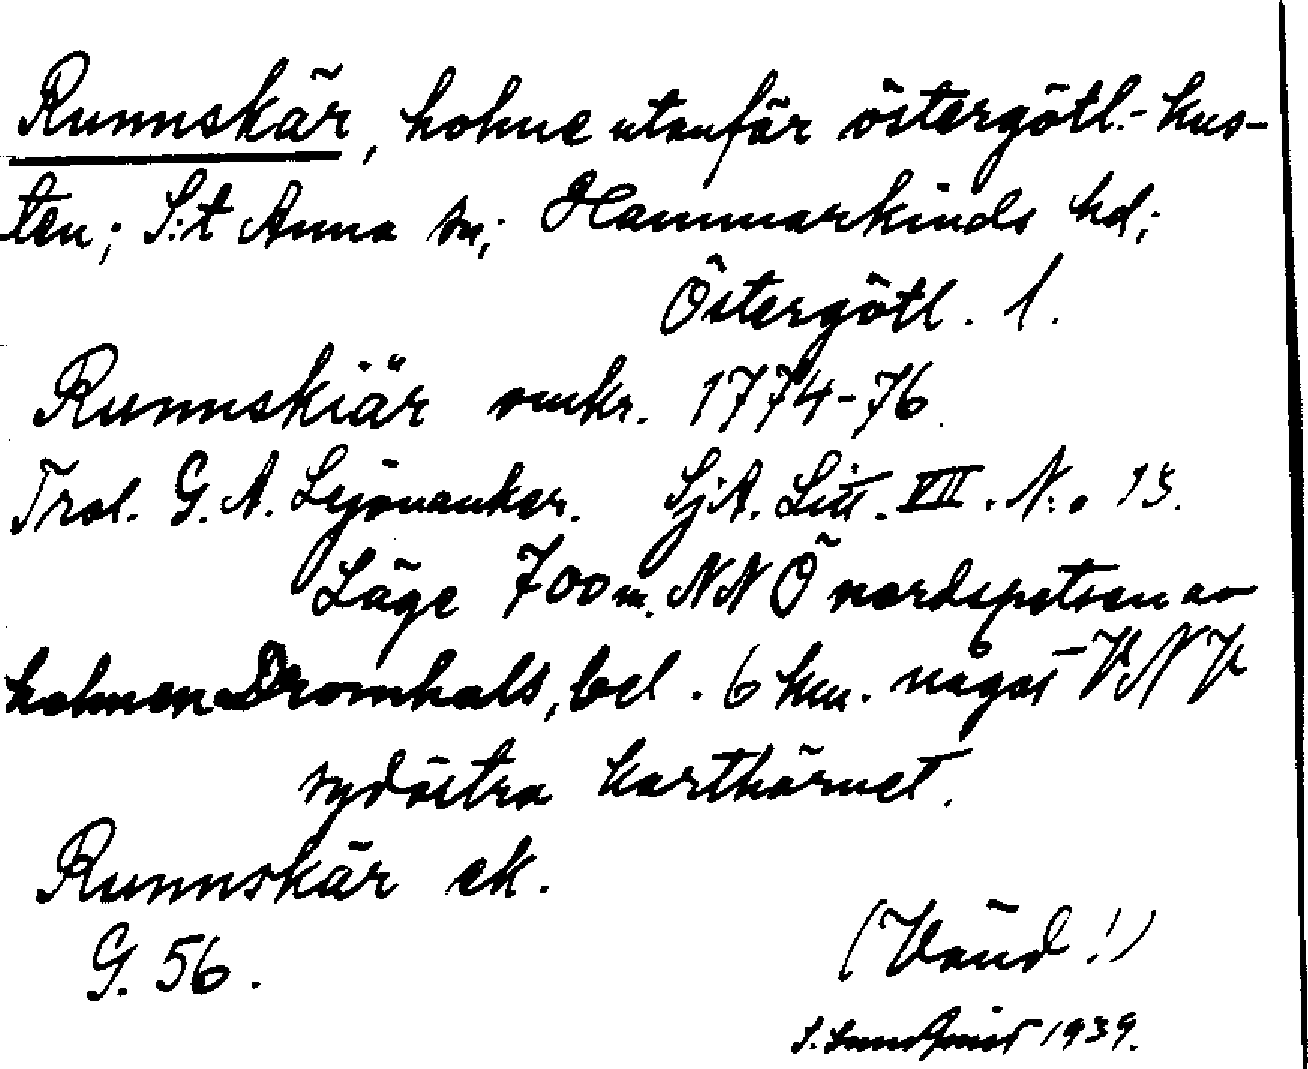 Runnskär, holme utanför östergötl.- kus-
ten; S:t Anna sn; Hammarkinds hd;
Östergötl. l.
Runnskiär smkr. 1774-76.
Trol. G. A. Lejonanker. SjA. Litt. VII. N:o 13.
Läge 700 m. NNÖ nordspetsen av
holmen Dromhals, bel. 6 km. något VNV
sydöstra karthörnet.
Runnskär ek.
G. 56.
(Vänd!)
S. Sundqvist 1939.